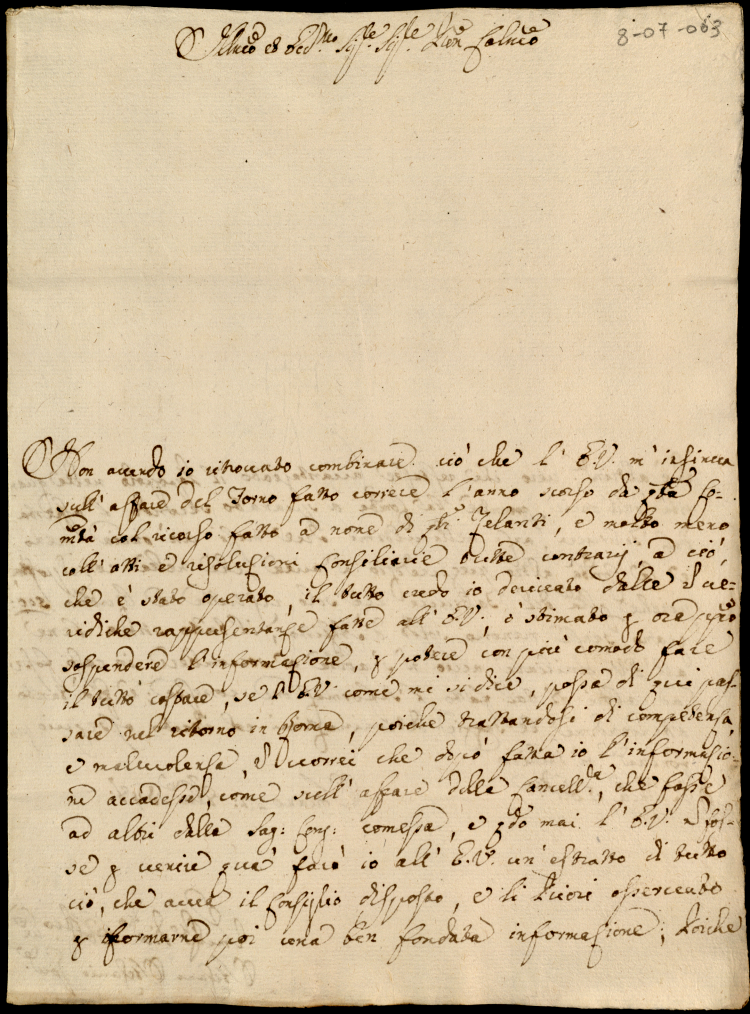 8-07-063
Illmo et Rdmo Sigre Sigre Pron Colmo
Non avendo io ritrovato combinare ciò che l' E.V. m' insinua
sull' affare del Forno fatto correre l' anno scorso da qta Co=
mtà col ricorso fatto a nome di pti Zelanti, e molto meno
coll' atti e risoluzioni Consiliarie tutte contrarij, a ciò,
che è stato operato, il tutto credo io derivato dalle
ridiche rappresentanze fatte all' E.V., ò stimato p ora
sospendere l' informazione, p potere con più comodo fare
il tutto costare, se l' E.V. come mi si dice, possa di quì pas=
sare nel ritorno in Roma, poiche trattandosi di competenza,
e malevolenza, vorrei che dopò fatta io l' informazio=
ne accadesse, come sull' affare della Cancellria, che fosse
ad altri dalla Sag: Cong: comessa, e qdo mai l' E.V. fos=
se p venire quà farò io all' E.V. un' estratto di tutto
ciò, che avea il Consiglio disposto, e li Priori
p formarne poi una ben fondata informazione; Poiche